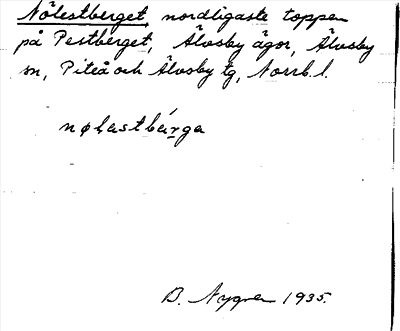 Nölestberget, nordligaste toppen
på Pestberget, Älvsby ägor, Älvsby
sn, Piteå och Älvsby tg, Norrb. l.
nøḷastbárga
B. Nygren 1935.